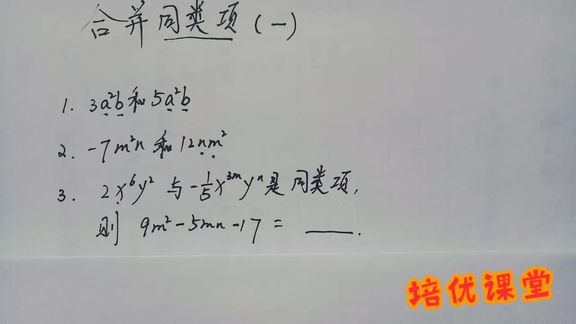 合并同类项(一)
1. 3a²b和5a²b
2. -7m²n和12nm²
3. 2x⁶y²与-1/5x³ᵐyⁿ是同类项,
则 9m²-5mn-17=____.
培优课堂